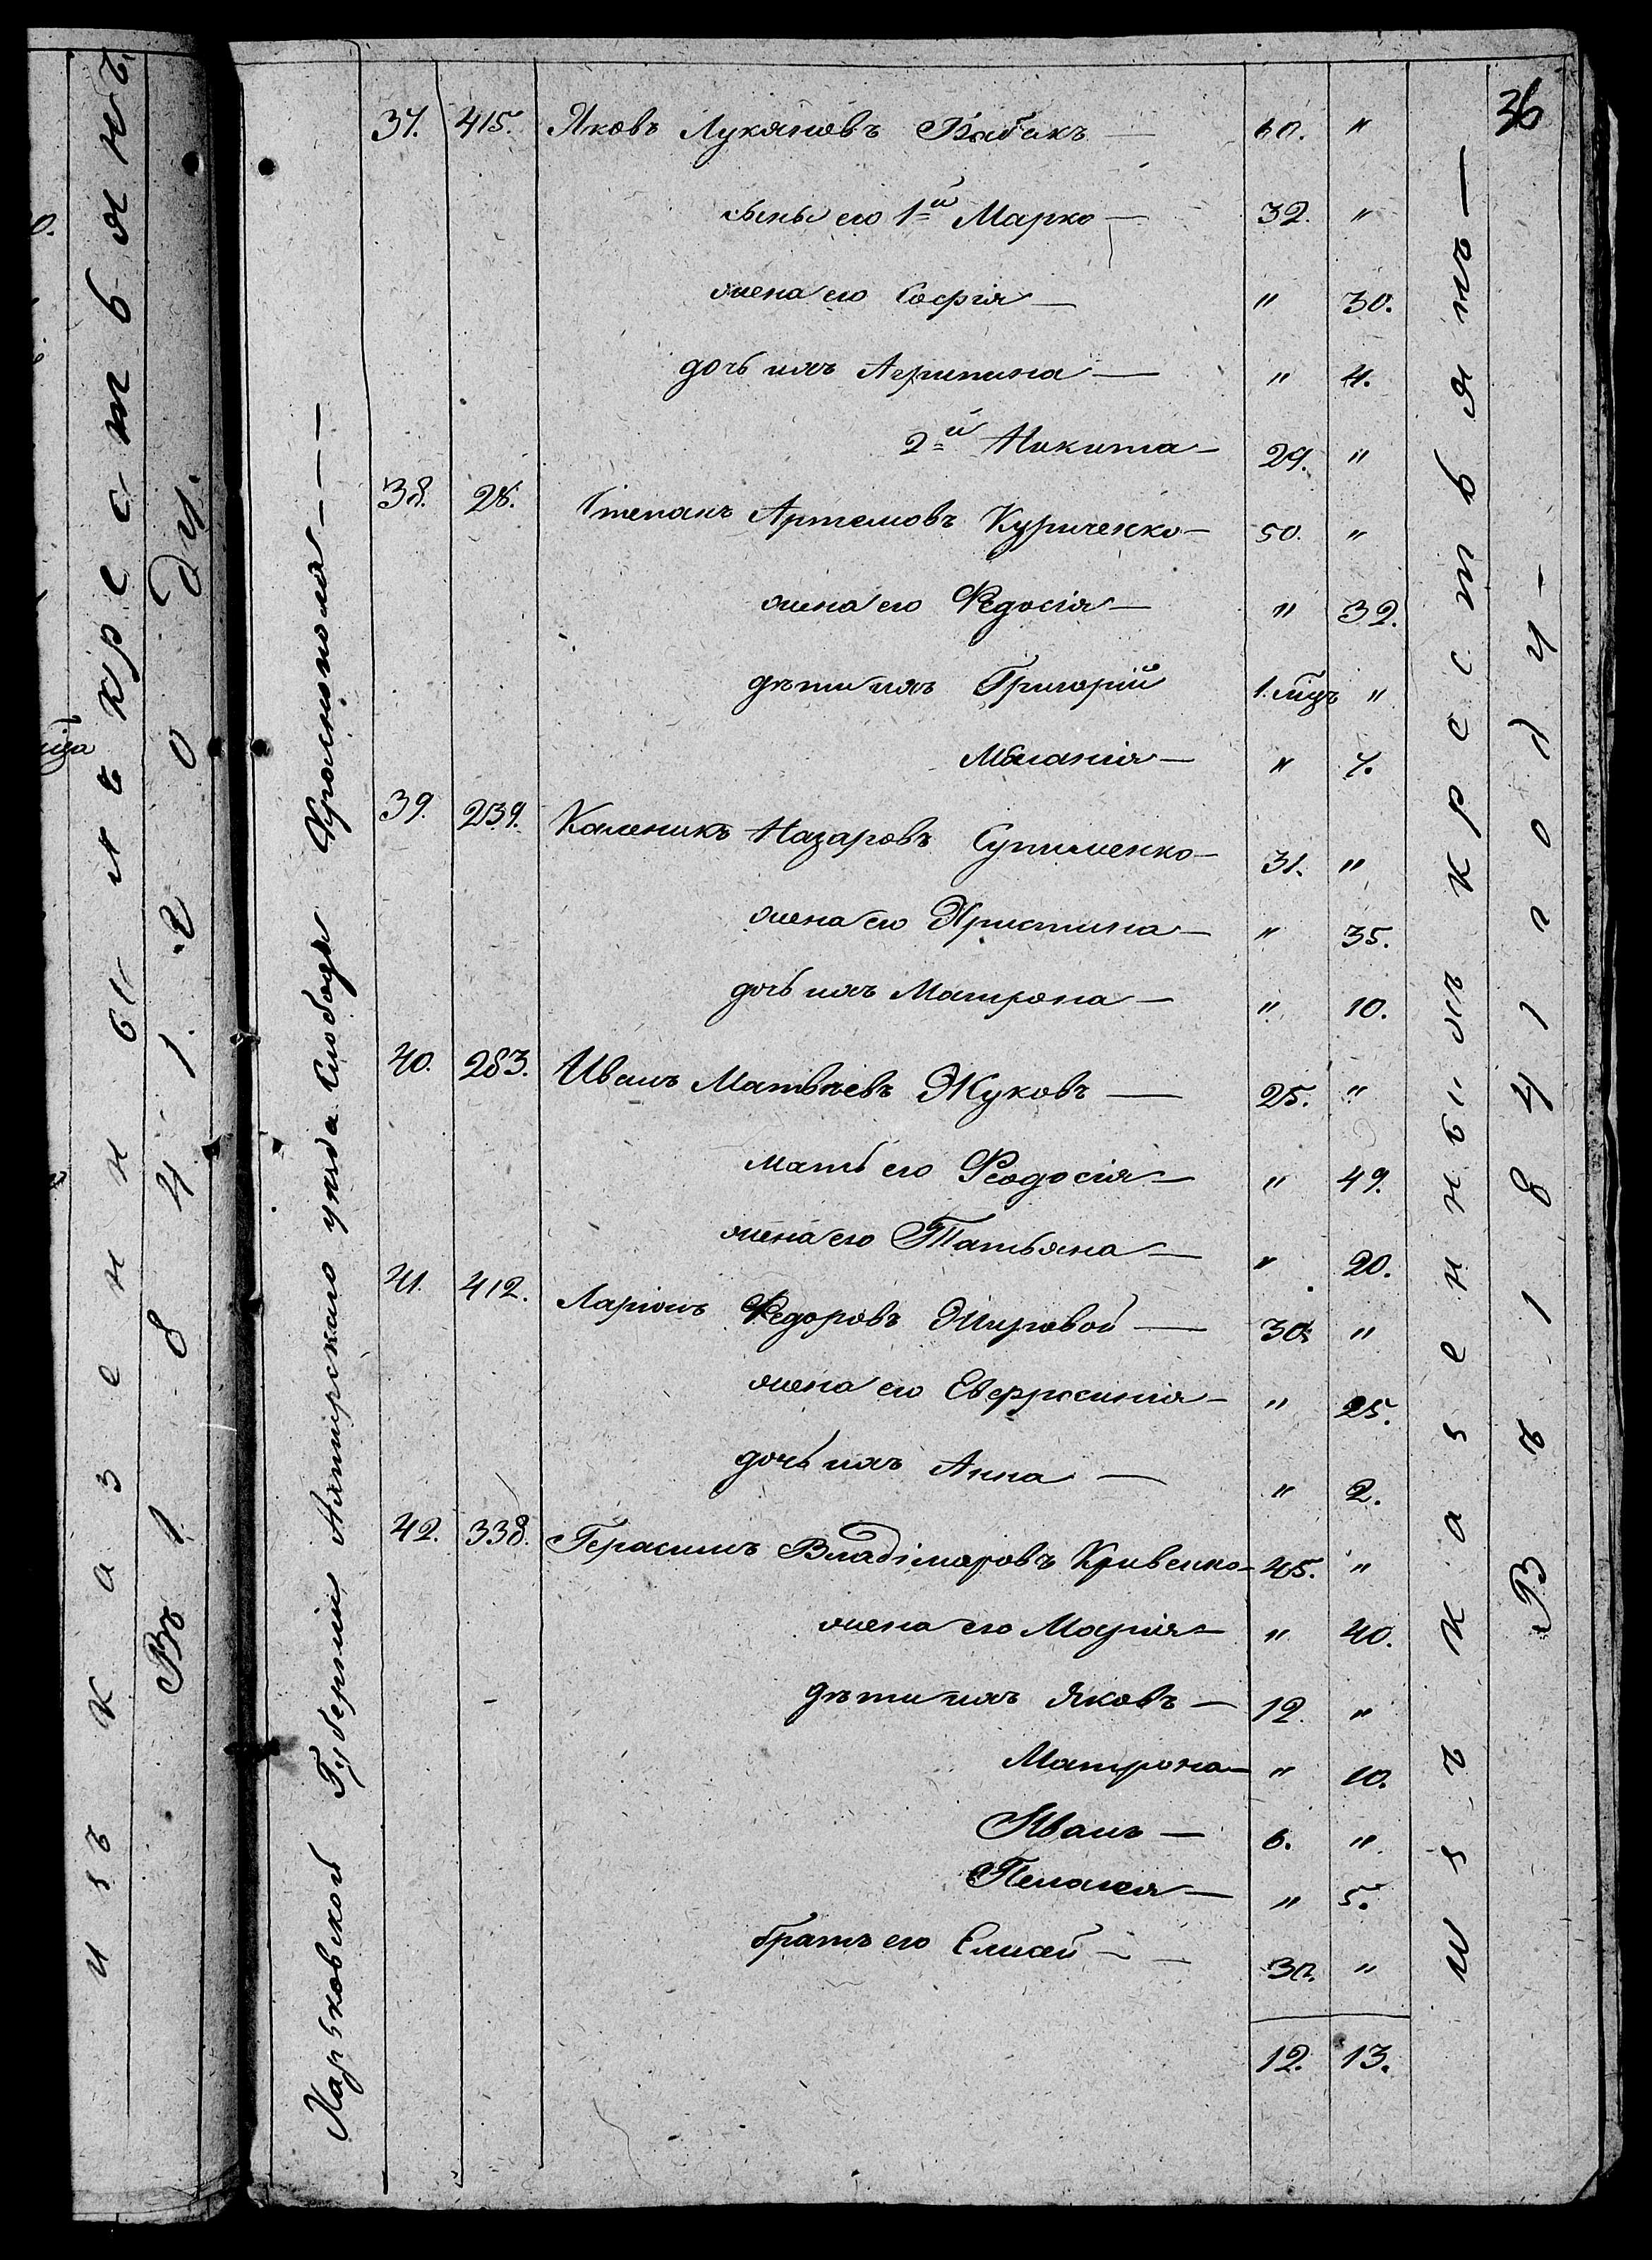 36
Харьковской Губерніи Ахтырскаго уезда Слободы Краснополья
Изъ казенныхъ крестьянъ
Въ 1841 году
37. 415. Яковъ Лукяновъ Бабакъ — 60. "
сыны его 1й Марко — 32. "
жена его Софія — " 30.
дочь ихъ Агрипина — " 4.
2й Никита — 29. "
38. 28. Степанъ Артемовъ Куриченко — 50. "
жена его Федосія — " 32.
дѣти ихъ Григорій 1. мцъ "
Меланія — " 7.
39. 239. Каленикъ Назаровъ — 31. "
жена его Христина — " 35.
дочь ихъ Матрона — " 10.
40. 283. Иванъ Матвѣевъ Жуковъ — 25. "
мать его Феодосія — " 49.
жена его Татьяна — " 20.
41. 412. Ларіонъ Федоровъ Жировой — 30. "
жена его Евфросинія — " 25.
дочь ихъ Анна — " 2.
42. 338. Герасимъ Владіміровъ Кривенко — 45. "
жена его Марія — " 40.
дѣти ихъ Яковъ — 12. "
Матрона — " 10.
Иванъ — 6. "
Пелагея — " 5.
братъ его Елисей — 30. "
12. 13.